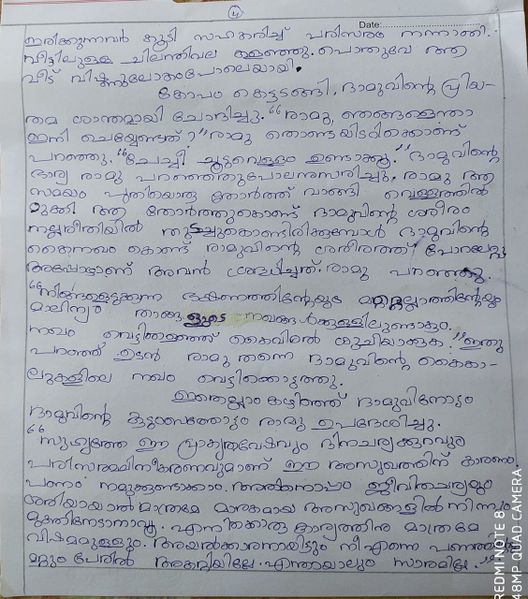 4
Date:
ഇരിക്കുന്നവർ കൂടി സഹകരിച്ച് പരിസരം നന്നാക്കി.
വീട്ടിലുള്ള ചിലന്തിവല കളഞ്ഞു. പൊതുവേ ആ
വീട് വിഷ്ണുലോകംപോലെയായി.
കോപം കെട്ടടങ്ങി. ദാമുവിന്റെ പ്രിയ-
തമ ശാന്തമായി ചോദിച്ചു. "രാമു, ഞങ്ങളെന്താ
ഇനി ചെയ്യേണ്ടത്?" രാമു തൊണ്ടയിടറിക്കൊണ്ട്
പറഞ്ഞു. "ചേച്ചി ചൂടുവെള്ളം ഉണ്ടാക്കൂ." ദാമുവിന്റെ
ഭാര്യ രാമു പറഞ്ഞതുപോലനുസരിച്ചു. രാമു ആ
സമയം പുതിയൊരു തോർത്ത് വാങ്ങി വെള്ളത്തിൽ
മുക്കി ആ തോർത്തുകൊണ്ട് ദാമുവിന്റെ ശരീരം
നല്ലരീതിയിൽ തുടച്ചുകൊണ്ടിരിക്കുമ്പോൾ ദാമുവിന്റെ
കൈനഖം കൊണ്ട് രാമുവിന്റെ ശരീരത്ത് പോറലേറ്റു
അപ്പോഴാണ് അവൻ ശ്രദ്ധിച്ചത്. രാമു പറഞ്ഞു.
"നിങ്ങളെടുക്കുന്ന ഭക്ഷണത്തിന്റേയും മറ്റെല്ലാത്തിന്റേയും
മാലിന്യം താങ്ങളുടെ നഖങ്ങൾക്കുള്ളിലുണ്ടാകും.
നഖം വെട്ടിക്കളഞ്ഞ് കൈവിരൽ ശുചിയാക്കുക." ഇതു
പറഞ്ഞ് ഉടൻ രാമു തന്നെ ദാമുവിന്റെ കൈകാ-
ലുകളിലെ നഖം വെട്ടിക്കൊടുത്തു.
ഇതെല്ലാം കഴിഞ്ഞ് ദാമുവിനോടും
ദാമുവിന്റെ കുടുംബത്തോടും രാമു ഉപദേശിച്ചു.
"സുഹൃത്തേ ഈ പ്രാകൃതവേഷവും ദിനചര്യക്കുറവും
പരിസരമലിനീകരണവുമാണ് ഈ അസുഖത്തിന് കാരണം
പണം നമുക്കുണ്ടാക്കാം. അതിനൊപ്പം ജീവിതചര്യയും
ശരിയായാൽ മാത്രമേ മാരകമായ അസുഖങ്ങളിൽ നിന്നും
മുക്തിനേടാനാവൂ. എനിക്കൊരു കാര്യത്തിനു മാത്രമേ
വിഷമമുള്ളൂ. അയൽക്കാരനായിട്ടും നീ എന്നെ പണത്തിന്റെ
മറ്റും പേരിൽ അകറ്റിയില്ലേ. എന്തായാലും സാരമില്ല."
REDMI NOTE 8
48MP QUAD CAMERA